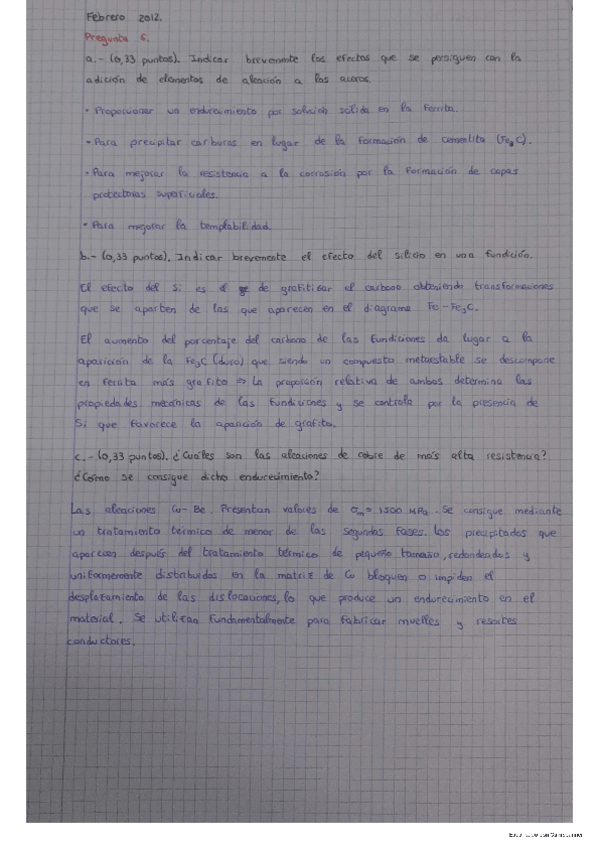 Febrero 2012.
Pregunta 6.
a.- (0,33 puntos). Indicar brevemente los efectos que se persiguen con la
adición de elementos de aleación a los aceros.
• Proporcionar un endurecimiento por solución sólida en la ferrita.
• Para precipitar carburos en lugar de la formación de cementita (Fe3C).
• Para mejorar la resistencia a la corrosión por la formación de capas
protectoras superficiales.
• Para mejorar la templabilidad.
b.- (0,33 puntos). Indicar brevemente el efecto del silicio en una fundición.
El efecto del Si es el de grafitizar el carbono obteniendo transformaciones
que se aparten de las que aparecen en el diagrama Fe-Fe3C.
El aumento del porcentaje del carbono de las fundiciones da lugar a la
aparición de la Fe3C (duro) que siendo un compuesto metaestable se descompone
en ferrita más grafito => La proporción relativa de ambos determina las
propiedades mecánicas de las fundiciones y se controla por la presencia de
Si que favorece la aparición de grafito.
c.- (0,33 puntos). ¿Cuáles son las aleaciones de cobre de más alta resistencia?
¿Cómo se consigue dicho endurecimiento?
Las aleaciones Cu-Be. Presentan valores de σm= 1500 MPa. Se consigue mediante
un tratamiento térmico de de las segundas fases. Los precipitados que
aparecen después del tratamiento térmico de pequeño tamaño, redondeados y
uniformemente distribuidos en la matriz de Cu bloquen o impiden el
desplazamiento de las dislocaciones, lo que produce un endurecimiento en el
material. Se utilizan fundamentalmente para fabricar muelles y resortes
conductores.